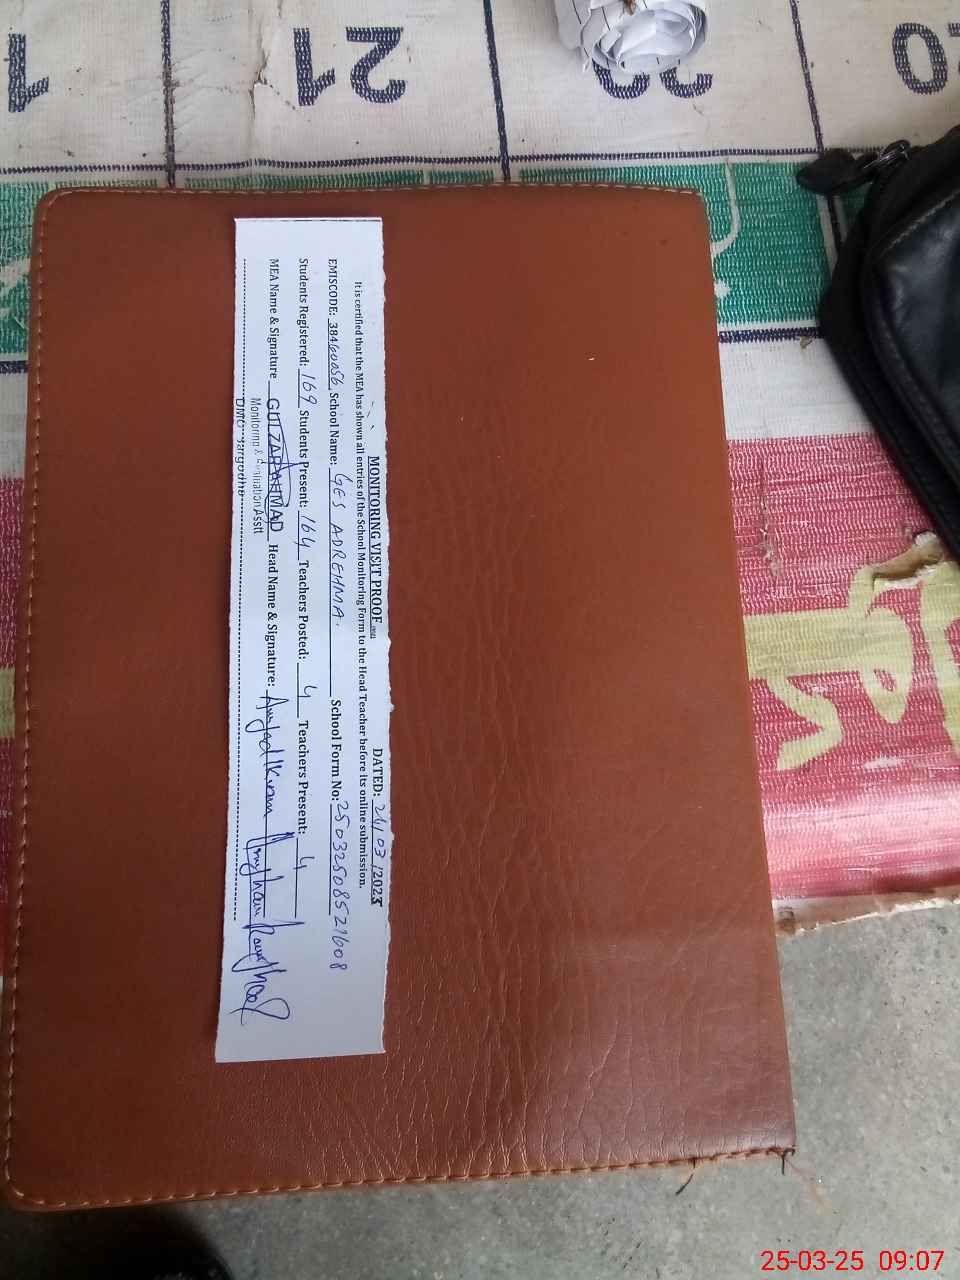 21
20
MONITORING VISIT PROOF
DATED: /03 /2023
It is certified that the MEA has shown all entries of the School Monitoring Form to the Head Teacher before its online submission.
EMISCODE: 38460056 School Name: GES ADREHMA. School Form No: 25032508521608
Students Registered: 169 Students Present: 164 Teachers Posted: 4 Teachers Present: 4
MEA Name & Signature GULZAR AHMAD Head Name & Signature: Amjad
Monitoring & Evaluation Asstt
DMO Sargodha
25-03-25 09:07